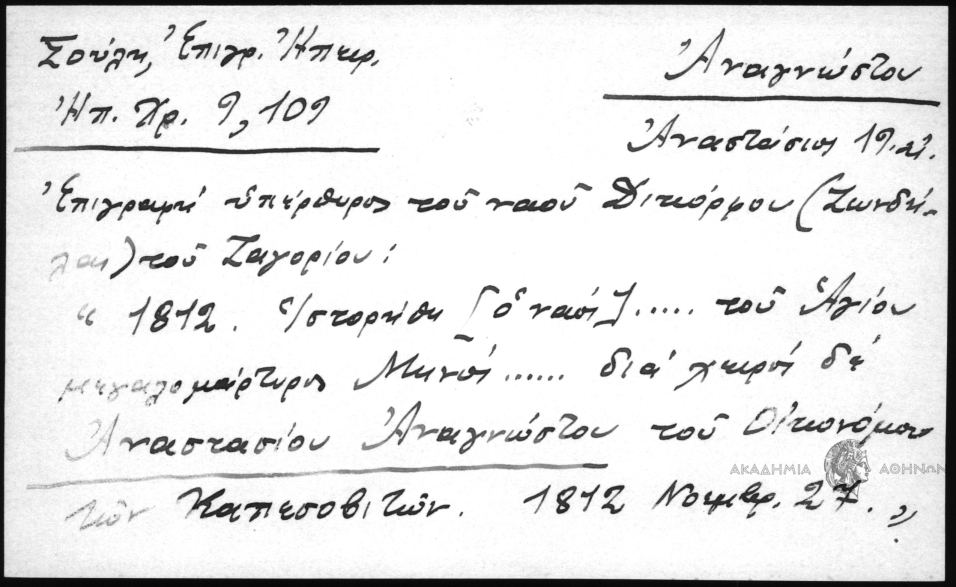 Σούλη, Ἐπιγρ. Ἠπειρ.
Ἠπ. Χρ. 9, 109
Ἀναγνώστου
Ἀναστάσιος 19. αἰ.
Ἐπιγραφή ὑπέρθυρος τοῦ ναοῦ Δικόρφου (Ζωνδή-
λας) τοῦ Ζαγορίου:
“ 1812. Ἱστορήθη [ὁ ναός]..... τοῦ Ἁγίου
μεγαλομάρτυρος Μηνᾶ...... διά χειρός δέ
Ἀναστασίου Ἀναγνώστου τοῦ Οἰκονόμου
τῶν Καπεσοβιτῶν. 1812 Νοεμβρ. 27. „
ΑΚΑΔΗΜΙΑ ΑΘΗΝΩΝ